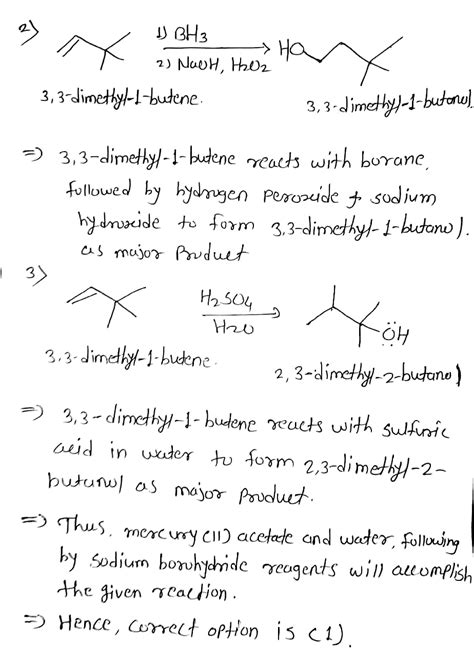 2)
1) BH3
2) NaOH, H2O2
HO
3,3-dimethyl-1-butene.
3,3-dimethyl-1-butanol
=) 3,3-dimethyl-1-butene reacts with borane,
followed by hydrogen peroxide & sodium
hydroxide to form 3,3-dimethyl-1-butanol.
as major Product
3)
H2SO4
H2O
ÖH
3,3-dimethyl-1-butene.
2,3-dimethyl-2-butanol
=) 3,3-dimethyl-1-butene reacts with sulfuric
acid in water to form 2,3-dimethyl-2-
butanol as major Product.
=) Thus, mercury (II) acetate and water, following
by sodium borohydride reagents will accomplish
the given reaction.
=) Hence, correct option is (1).